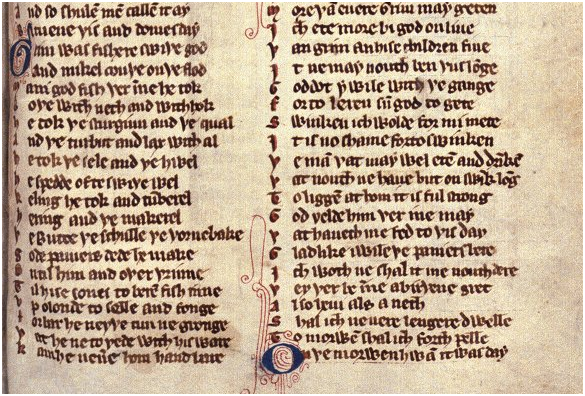 And so shulē mē callē it ay
Bituene þis and domesday
Grim was fishere swiþe god
And mikel couþe on þe flod
Mani god fish þer īne he tok
Boþe with neth and with hok
He tok þe sturgiun and þe qual
And þe turbut and lax with al
He tok þe sele and þe hwel
He spedde ofte swiþe wel
Keling he tok and tūberel
Hering and þe makerel
Þe Butte þe schulle þe þornebake
Gode paniers dede he make
Ontil him and oþer þrinne
Til hise sones to berē fish īnne
Vp o londe to selle and fonge
Forbar he neyþe tun ne gronge
Þat he ne to yede with his ware
Kam he neuere hom hand bare
More þā euere Grim may geten
Ich ete more bi god on liue
Þan grim an hise children fiue
It ne may nouth ben þus lōge
Goddot y wile with þe gange
For to leren sū god to gete
Swinken ich wolde for mi mete
It is no shame forto swinken
Þe mā þat may wel etē and drīke
Þat nouth ne haue but on swīk lōg
To liggē at hom it is ful strong
God yelde him þer i ne may
Þat haueth me fed to þis day
Gladlike i wile þe paniers bere
Ich woth ne shal it me nouth dere
Þey þer be īne a birþene gret
Also heui als a neth
Shal ich neuere lengere dwelle
To morwē shal ich forth pelle
On þe morwen hwā it was day